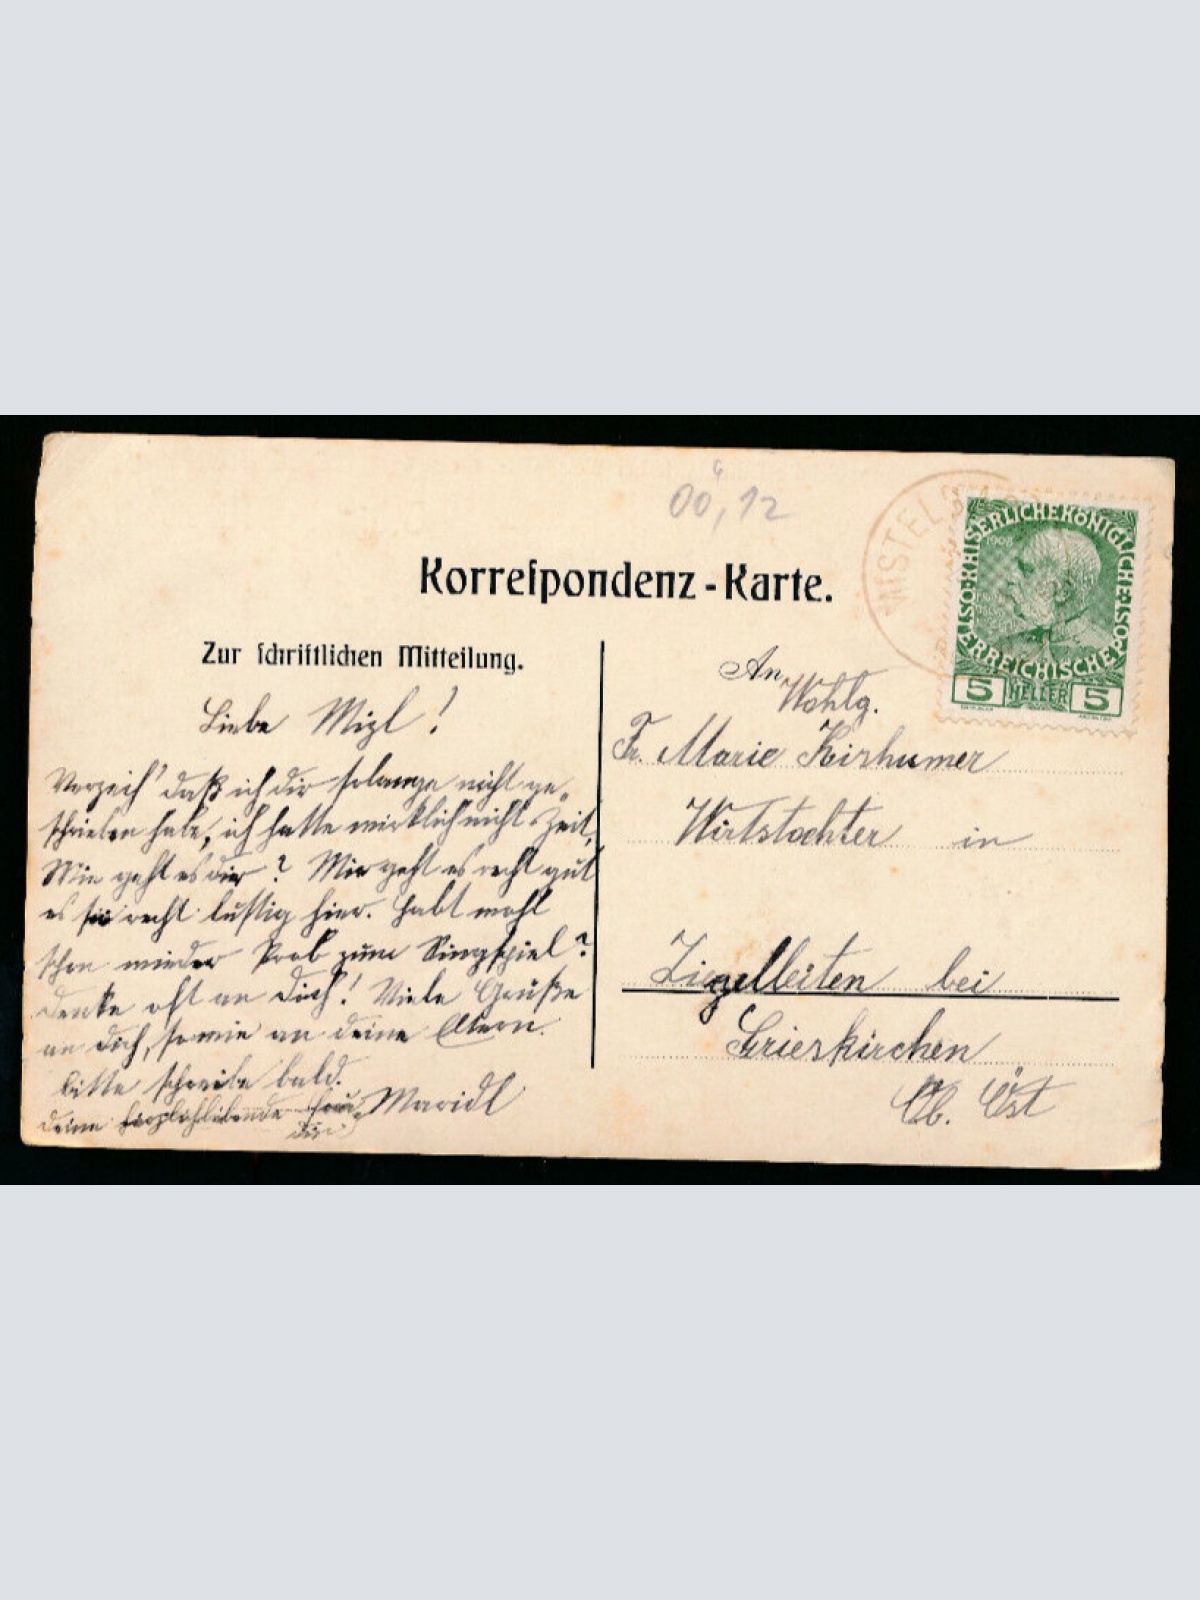 OÖ, 12
Korrespondenz-Karte.
Zur schriftlichen Mitteilung.
Liebe Mizl!
Verzeih' daß ich dir solange nicht ge„
schrieben habe, ich hatte wirklich nicht Zeit,
Wie geht es dir? Mir geht es recht gut
es ist recht lustig hier. Habt wohl
schon wieder Prob zum Singspiel?
denke oft an dich! Viele Grüße
an dich, sowie an deine Eltern.
bitte schreibe bald.
deine herzlichliebende Maridl
An
Wohlg.
Fr. Marie Kirhumer
Wirtstochter in
Ziegelleiten bei
Grieskirchen
Ob. Öst
KAISERLICHEKÖNIGLICHE
ÖSTERREICHISCHEPOST
1908
5 HELLER 5